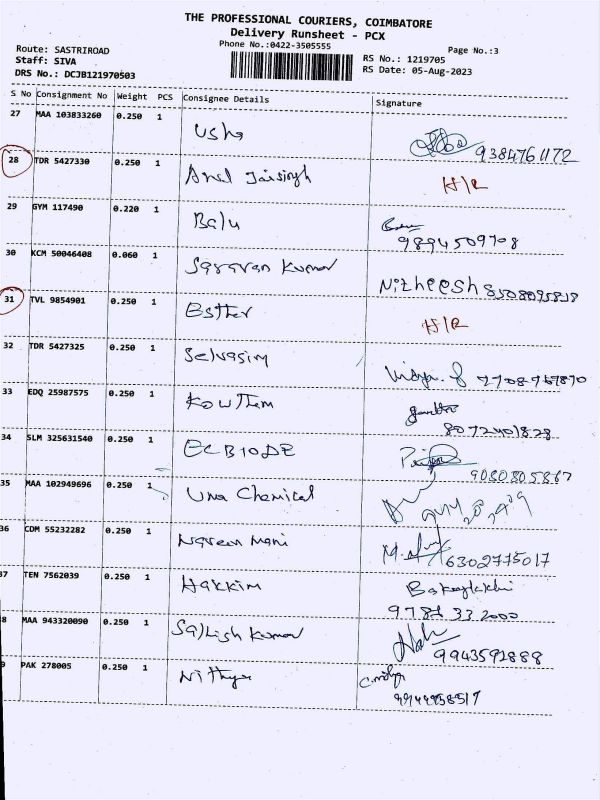 THE PROFESSIONAL COURIERS, COIMBATORE
Delivery Runsheet - PCX
Phone No.:0422-3505555
Page No.:3
Route: SASTRIROAD
Staff: SIVA
DRS No.: DCJB121970503
RS No.: 1219705
RS Date: 05-Aug-2023
S No Consignment No Weight PCS Consignee Details Signature
27 MAA 103833260 0.250 1 Usha 9384761172
28 TDR 5427330 0.250 1 Anal Jaisingh H/R
29 GYM 117490 0.220 1 Balu 9894509708
30 KCM 50046408 0.060 1 Saravan Kumar Nitheesh 8508095838
31 TVL 9854901 0.250 1 Esther H/R
32 TDR 5427325 0.250 1 Selvasing 7708767870
33 EDQ 25987575 0.250 1 Kowthem 8072401828
34 SLM 325631540 0.250 1 ECB10DE 9080805867
35 MAA 102949696 0.250 1 Uma Chemical
36 CDM 55232282 0.250 1 Naveen Mani 6302775017
37 TEN 7562039 0.250 1 Hakkim
9781 33 2000
8 MAA 943320090 0.250 1 Sathish Kumar 9943592888
9 PAK 278005 0.250 1 Nithya 9944958517